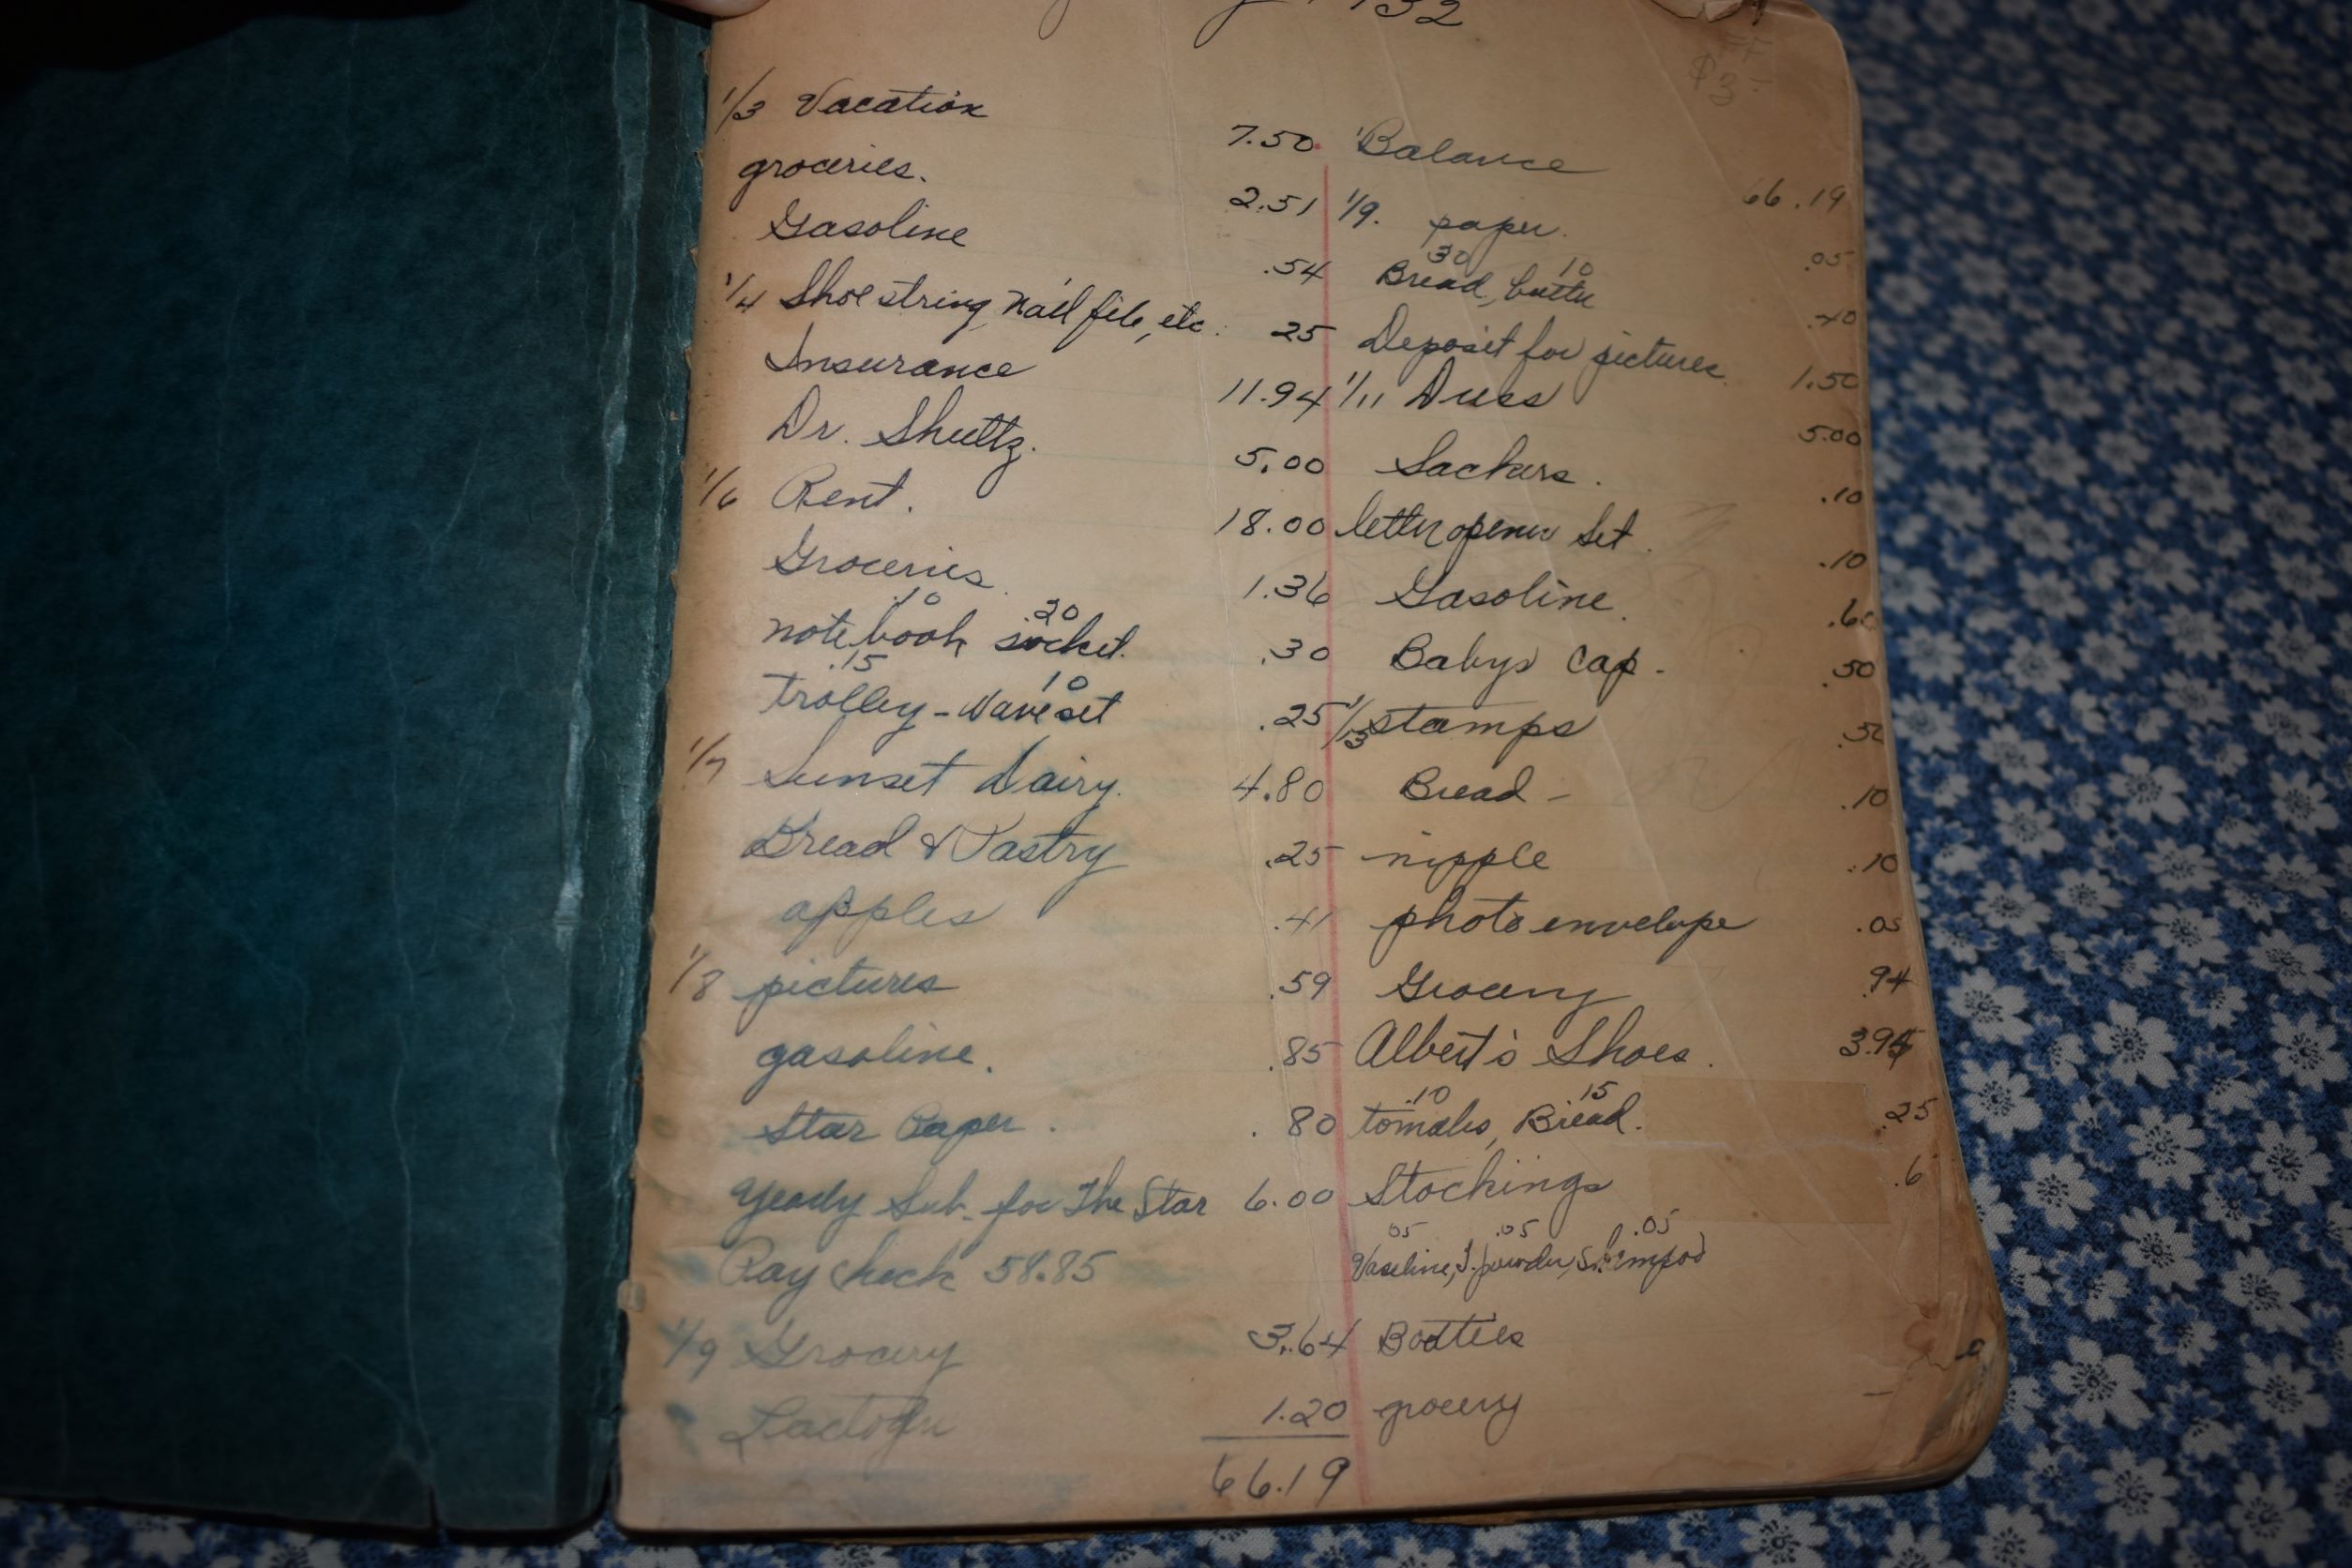 1932
$3
1/3 Vacation 7.50
groceries. 2.51
Gasoline .54
1/4 Shoe string, nail file, etc. 25
Insurance 11.94
Dr. Shultz. 5.00
1/6 Rent. 18.00
Groceries 1.36
.10 .20
notebook socket. .30
.15 10
trolley - Waveset .25
1/7 Sunset Dairy. 4.80
Bread & Pastry .25
apples .41
1/8 pictures .59
gasoline. .85
Star Paper. .80
Yearly Sub. for The Star 6.00
Pay check 58.85
1/9 Grocery 3.64
Lactogen 1.20
66.19
Balance 66.19
1/9. paper. .05
30 10
Bread, butter .40
Deposit for pictures. 1.50
1/11 Dues 5.00
Sackers. .10
letter opener set. .10
Gasoline. .60
Babys cap. .50
1/13 stamps .50
Bread - .10
nipple .10
photo envelope .05
Grocery .94
Albert's Shoes. 3.95
.10 15
tomales, Bread. .25
Stockings .6
05 .05 .05
Vaseline, T. powder,
Booties
grocery